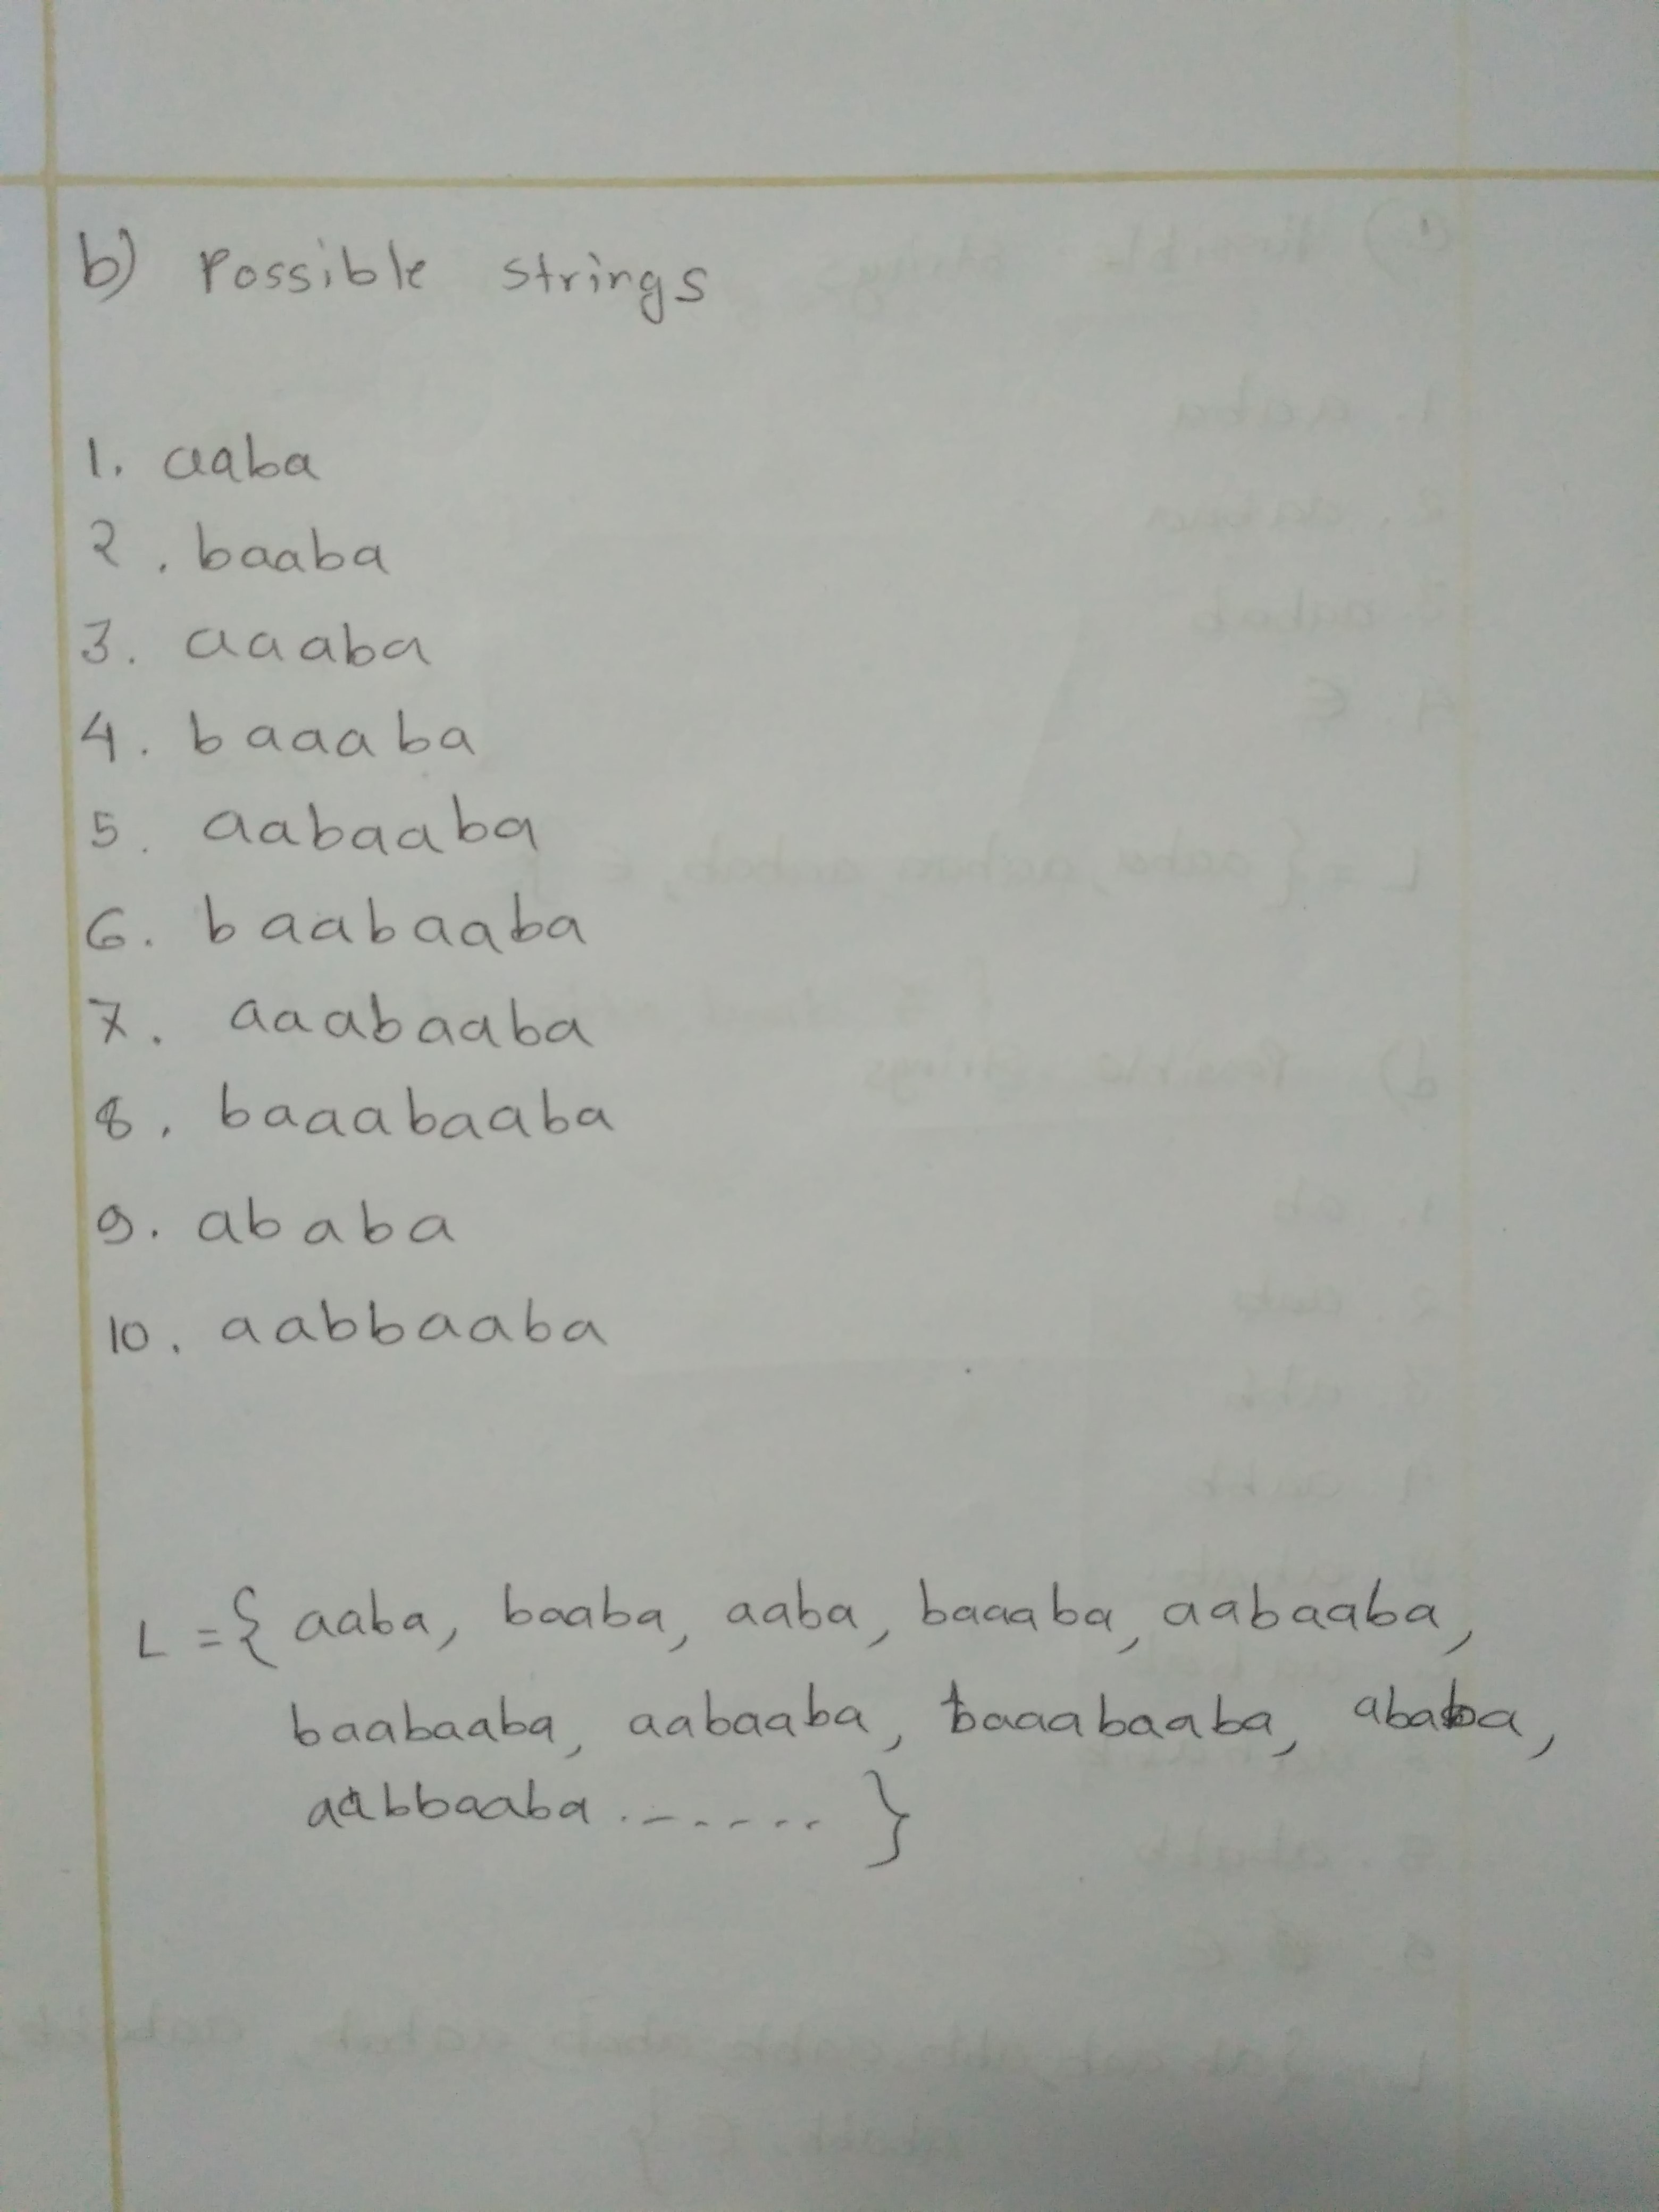 b) Possible strings
1. aaba
2. baaba
3. aaaba
4. baaaba
5. aabaaba
6. baabaaba
7. aaabaaba
8. baaabaaba
9. ababa
10. aabbaaba
L = { aaba, baaba, aaba, baaaba, aabaaba,
baabaaba, aabaaba, baaabaaba, ababa,
aabbaaba ....... }